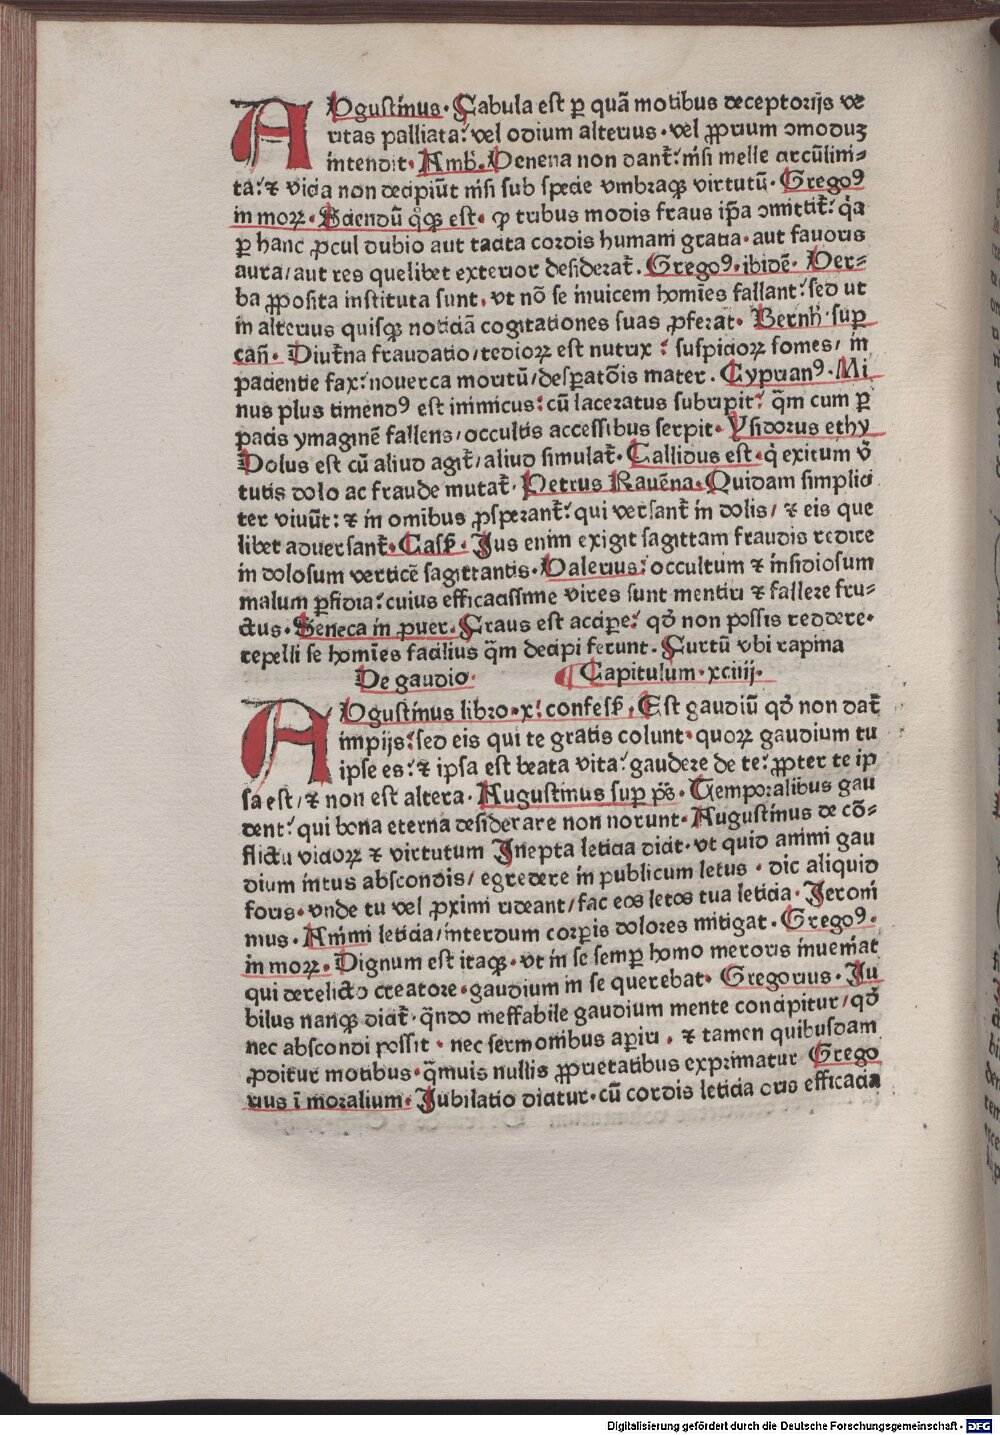 AUgustinus. Fabula est ꝑ quã motibus deceptorijs ve
ritas palliata: vel odium alterius. vel ꝓprium ↄmoduꝫ
intendit. Amb̃. Uenena non dant̃: nisi melle circũlini⸗
ta: ⁊ vicia non decipiũt nisi sub specie vmbraqꝫ virtutũ. Gregoꝰ
in moꝝ. Sciendũ q̊qꝫ est. ꝙ tribus modis fraus ip̃a ↄmittit̃: q̃a
ꝑ hanc ꝓcul dubio aut tacita cordis humani gratia. aut fauoris
aura/ aut res quelibet exterior desiderat̃. Gregoꝰ. ibidẽ. Uer⸗
ba ꝓposita instituta sunt. vt nõ se inuicem homĩes fallant: sed ut
in alterius quisqꝫ noticiã cogitationes suas ꝓferat. Bernh̃. suꝑ
cañ. Diut̃na fraudatio/ tedioꝝ est nutrix : suspicioꝝ fomes/ in
pacientie fax: nouerca moritũ/ desꝑatõis mater. Cyprianꝰ. Mi
nus plus timendꝰ est inimicus: cũ laceratus subripit: q̃m cum ꝑ
pacis ymaginẽ fallens/ occultis accessibus serpit. Ysidorus ethy
Dolus est cũ aliud agit̃/ aliud simulat̃. Callidus est. q̇ exitum v̾
tutis dolo ac fraude mutat̃. Petrus Rauẽna. Quidam simplici
ter viuũt: ⁊ in omĩbus ꝓsperant̃: qui versant̃ in dolis/ ⁊ eis que
libet aduersant̃. Casẜ. Jus enim exigit sagittam fraudis redire
in dolosum verticẽ sagittantis. Ualerius: occultum ⁊ insidiosum
malum ꝑfidia: cuius efficacissime vires sunt mentiri ⁊ fallere fru⸗
ctus. Seneca in ꝓuer. Fraus est accipe: qd̾ non possis reddere.
repelli se homĩes facilius q̃m decipi ferunt. Furtũ vbi rapina
De gaudio. ¶ Capitulum. xciiij.
AUgustinus libro. x: confesẜ. Est gaudiũ qd̾ non dat̃
impijs: sed eis qui te gratis colunt. quoꝝ gaudium tu
ipse es: ⁊ ipsa est beata vita: gaudere de te: ꝓpter te ip
sa est/ ⁊ non est altera. Augustinus suꝑ p̃s. Temporalibus gau
dent: qui bona eterna desiderare non norunt. Augustinus de cõ⸗
flictu vicioꝝ ⁊ virtutum Jnepta leticia dicit. vt quid animi gau
dium intus abscondis/ egredere in publicum letus . dic aliquid
foris. vnde tu vel ꝓximi rideant/ fac eos letos tua leticia. Jeroni
mus. Animi leticia/ interdum corꝑis dolores mitigat. Gregoꝰ.
in moꝝ. Dignum est itaqꝫ. vt in se semꝑ homo meroris inueniat
qui derelicto creatore. gaudium in se querebat. Gregorius. Ju
bilus nanqꝫ dicit̃. q̃ndo ineffabile gaudium mente concipitur/ qd̾
nec abscondi possit . nec sermonibus aꝑiri . ⁊ tamen quibusdam
ꝓditur motibus. q̃muis nullis ꝓprietatibus exprimatur Grego
rius ĩ moralium. Jubilatio dicitur. cũ cordis leticia oris efficacia
Digitalisierung gefördert durch die Deutsche Forschungsgemeinschaft - DFG